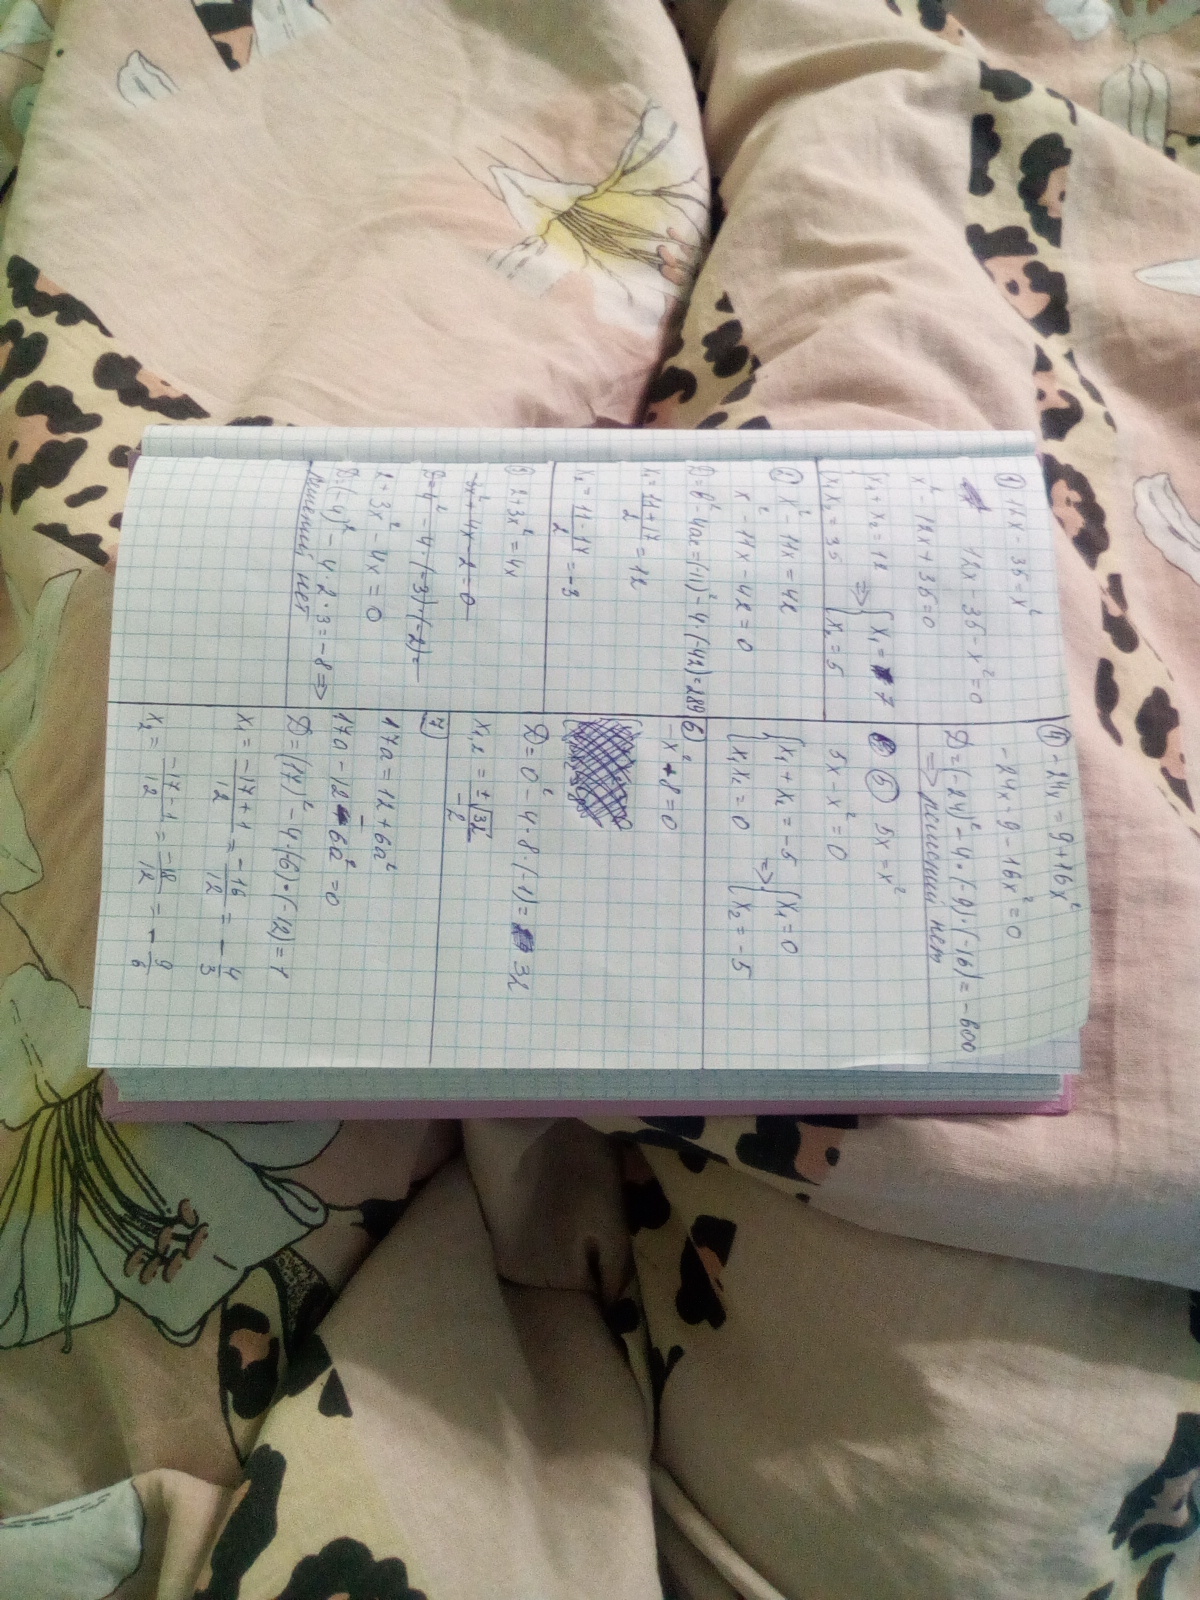 ① 12x - 35 = x²
12x - 35 - x² = 0
x² - 12x + 35 = 0
{ x₁ + x₂ = 12 => { x₁ = 7
{ x₁x₂ = 35 { x₂ = 5
② x² - 11x = 42
x² - 11x - 42 = 0
D = b² - 4ac = (-11)² - 4·(-42) = 289
x₁ = (11 + 17)/2 = 12
x₂ = (11 - 17)/2 = -3
③ 2 + 3x² = 4x
-3x² + 4x - 2 = 0
D = 4² - 4·(-3)·(-2) =
2 + 3x² - 4x = 0
D = (-4)² - 4·2·3 = -8 =>
решений нет
④ -24x = 9 + 16x²
-24x 9 - 16x² = 0
D = (-24)² - 4·(-9)·(-16) = -600
=> решений нет
⑤ 5x = x²
5x - x² = 0
{ x₁ + x₂ = -5 => { x₁ = 0
{ x₁x₂ = 0 { x₂ = -5
6) -x² + 8 = 0
D = 0² - 4·8·(-1) = 32
x₁,₂ = ±√32/-2
7) 17a = 12 + 6a²
17a - 12 - 6a² = 0
D = (17)² - 4·(6)·(-12) = 1
x₁ = (-17 + 1)/12 = -16/12 = -4/3
x₂ = (-17 - 1)/12 = -18/12 = -9/6